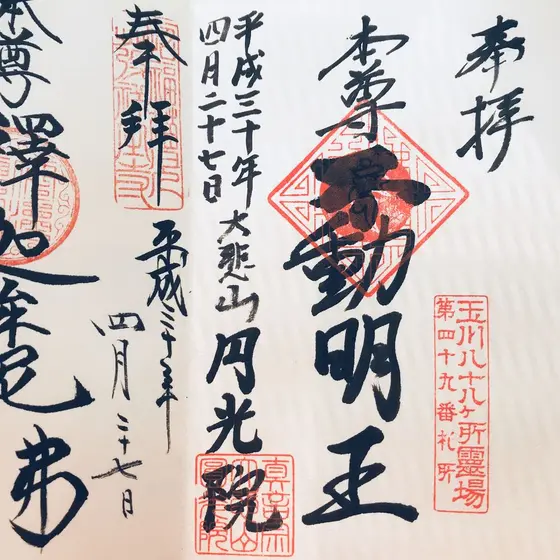 奉拝
玉川八十八ヶ所霊場
第四十九番札所
本尊不動明王
平成三十年
四月二十七日
大悲山円光院
奉拝
平成三十年
四月二十七日
本尊釋迦牟尼弗